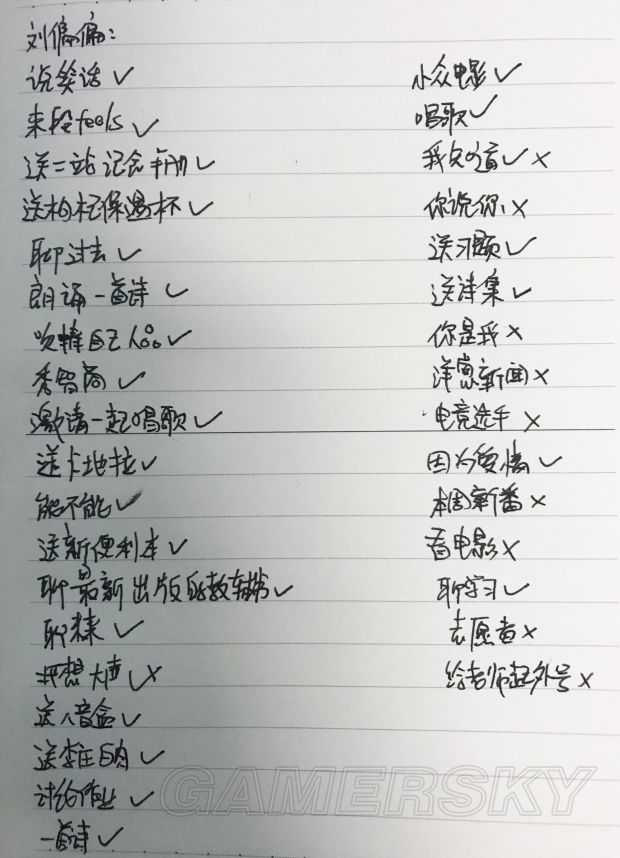 刘偏偏：
说笑话 ✓
来段feels ✓
送二站记念手册 ✓
送枸杞保温杯 ✓
聊过去 ✓
朗诵一首诗 ✓
吹捧自己人品 ✓
秀智商 ✓
邀请一起唱歌 ✓
送卡地拉 ✓
能不能 ✓
送新便利本 ✓
聊最新出版的教辅书 ✓
聊 ✓
我想大声 ✓×
送八音盒 ✓
送 ✓
讨论作业 ✓
一首诗 ✓
小众电影 ✓
唱歌 ✓
我知道 ✓×
你说你 ×
送习题 ✓
送诗集 ✓
你是我 ×
洋葱新闻 ×
电竞选手 ×
因为爱情 ✓
本周新番 ×
看电影 ×
聊学习 ✓
志愿者 ×
给老师起外号 ×
GAMERSKY